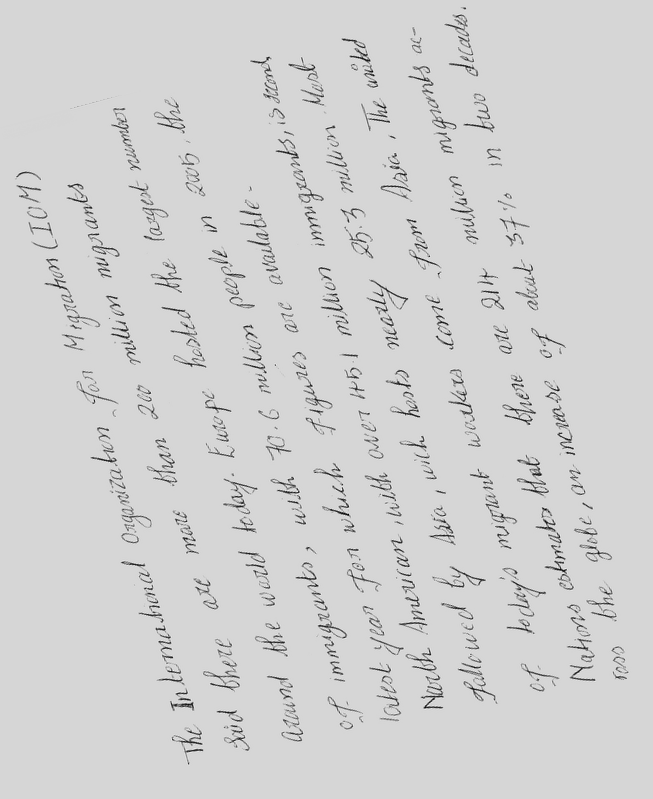 Migration (IOM)
The International Organization for Migrants
said there are more than 200 million migrants
around the world today. Europe hosted the largest number
of immigrants, with 70.6 million people in 2005, the
latest year for which figures are available.
North American, with over 45.1 million immigrants, is second
followed by Asia, wich hosts nearly 25.3 million. Most
of today's migrant workers come from Asia, The united
Nations estimates that there are 214 million migrants ac-
ross the globe, an increase of about 37% in two decades.